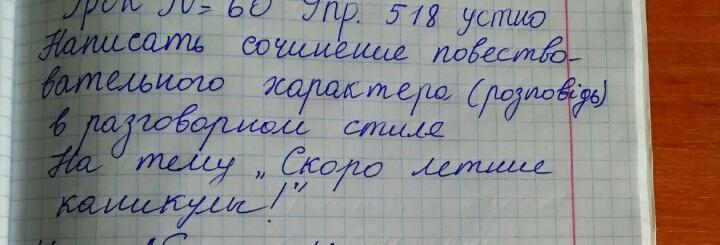 Урок № 60 Упр. 518 устно
Написать сочинение повество-
вательного характера (розповідь)
в разговорном стиле
На тему „Скоро летние
каникулы!"